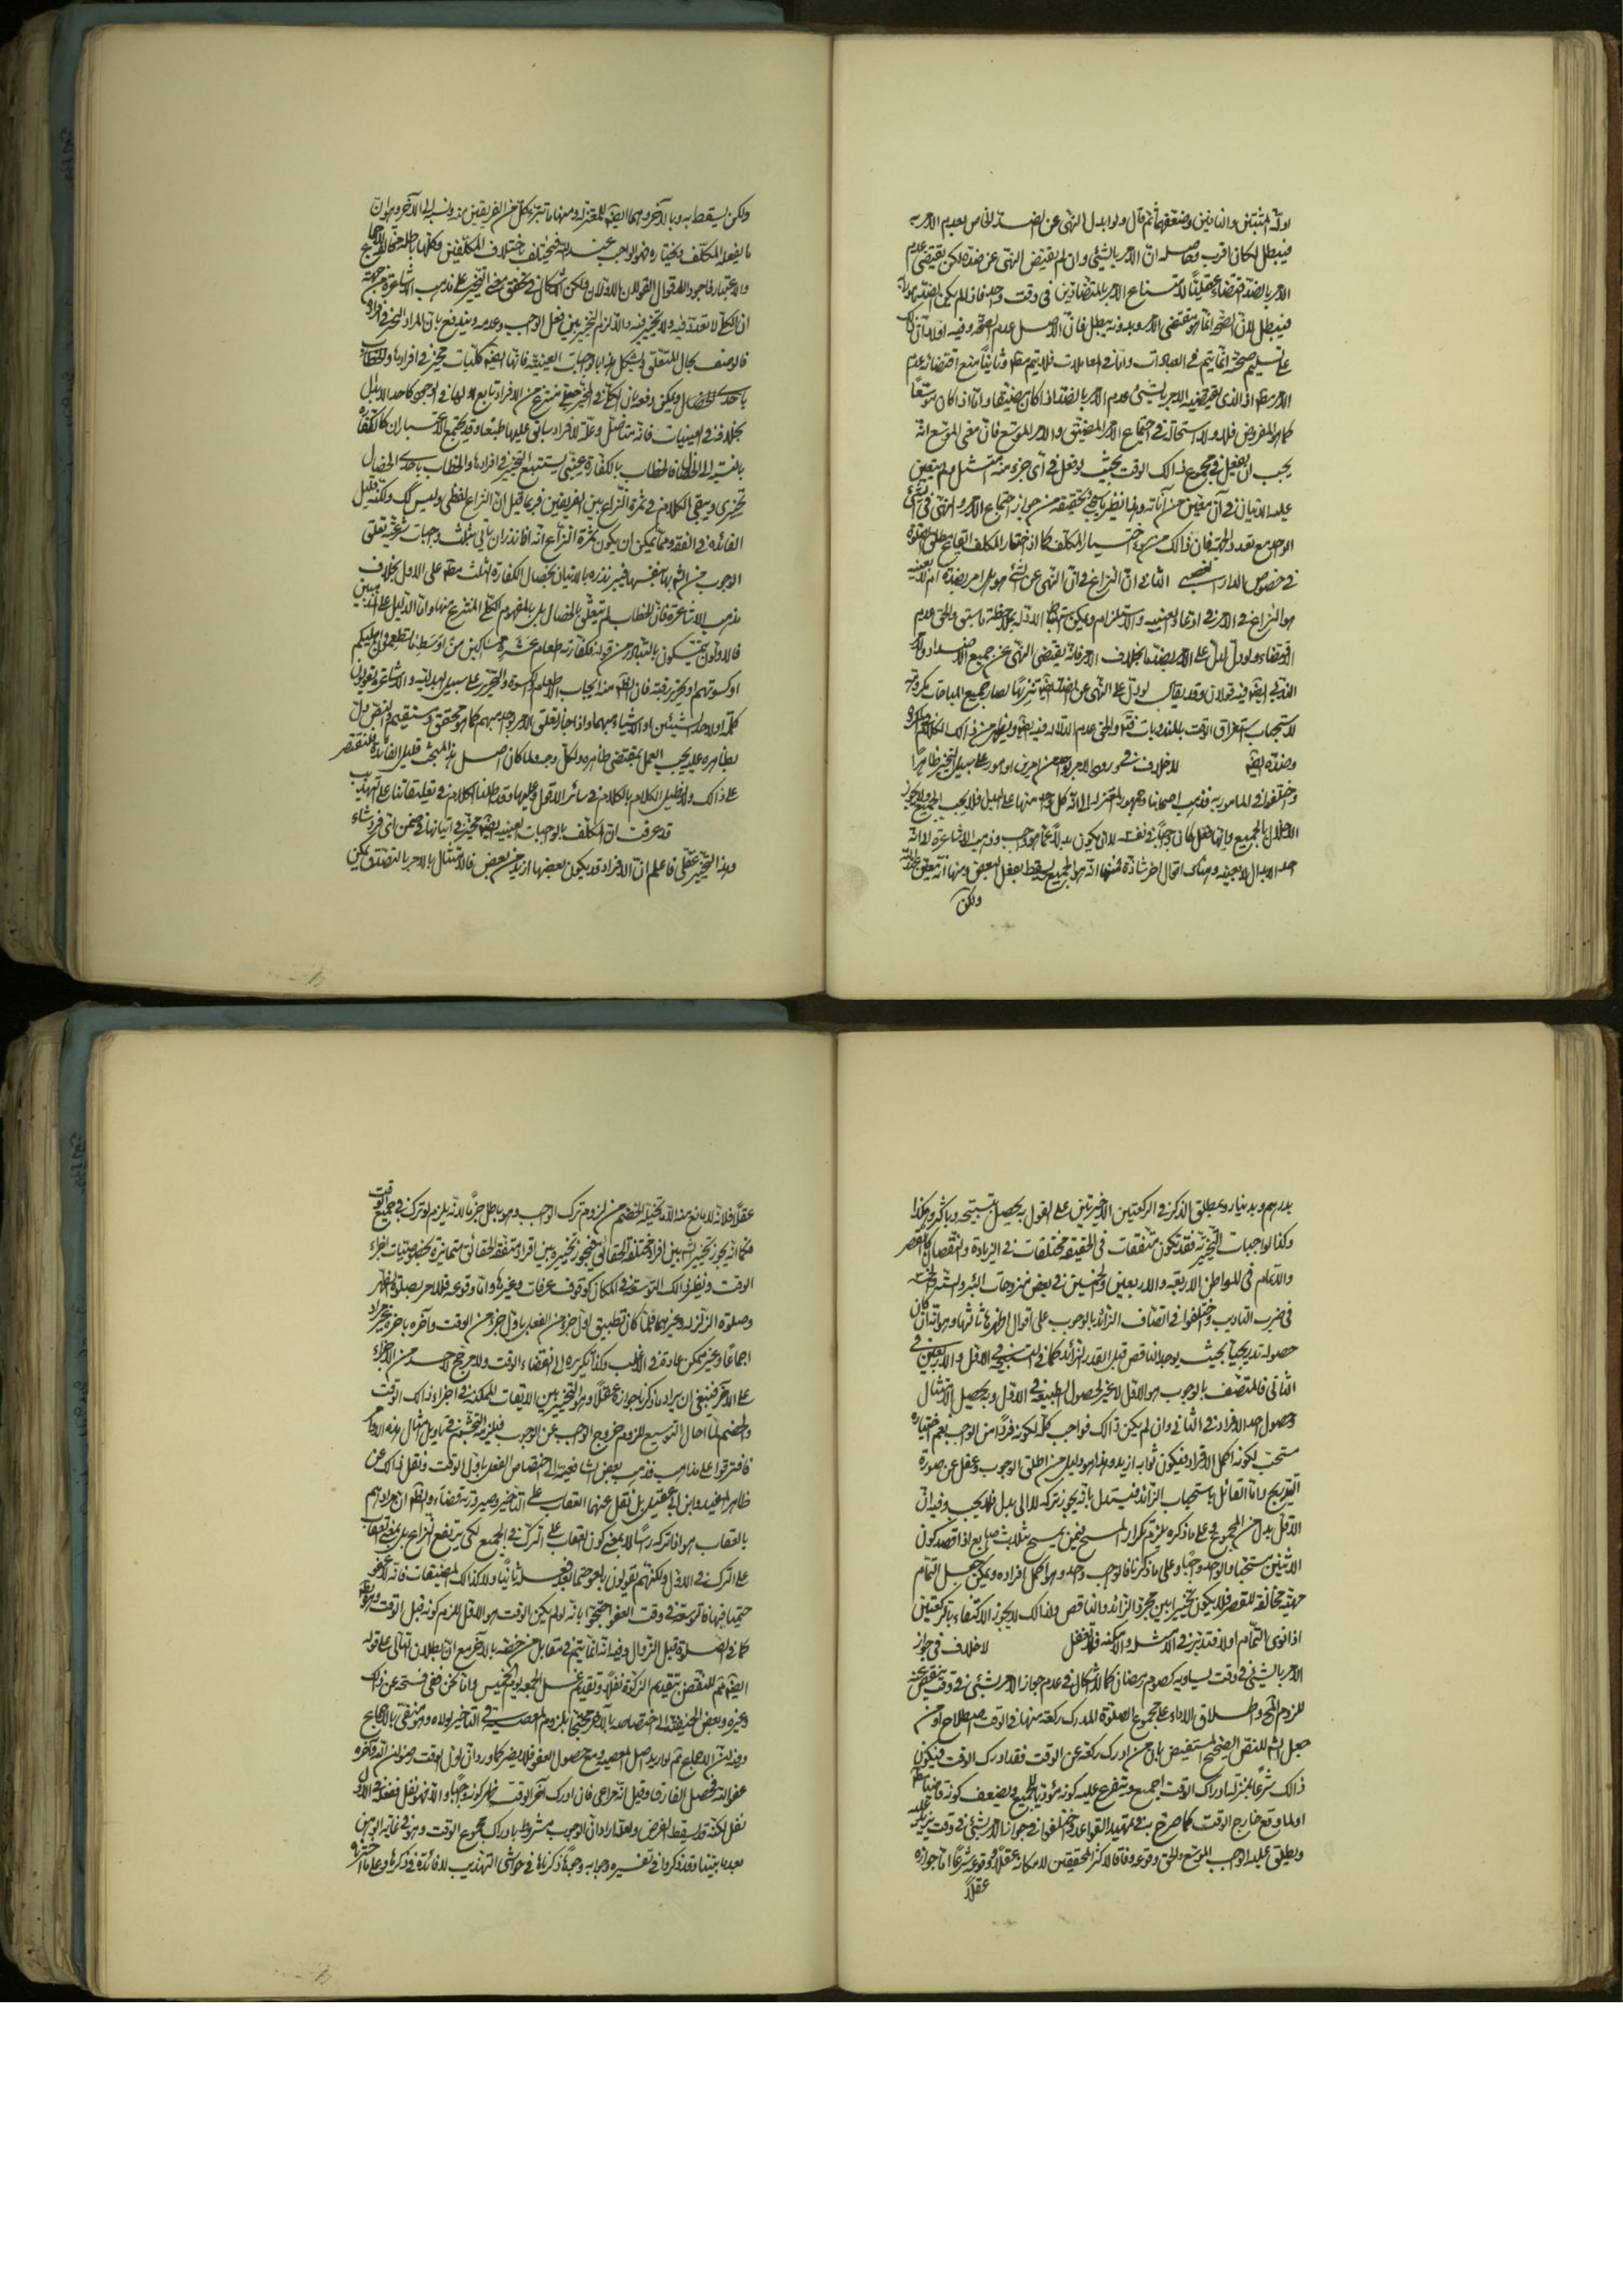 ادلة المثبتين والنافين وضعفهما ثم قال ولو ابدل النهى عن الضد الخاص بعدم الامر به
فيبطل لكان اقرب وحاصله ان الامر بالشيئى وان لم يقتض النهى عن ضده لكن يقتضى عدم
الامر بالضد اقتضاء عقليا لامتناع الامر بالمتضادين فى وقت واحد فاذا لم يكن الضد مامورا به
فيبطل لان الصحة انما هو مقتضى الامر وبدونه يبطل فان الاصل عدم الصحة وفيه اولا ان ذلك
على تسليم صحته انما يتم فى العبادات واما فى المعاملات فلا يتم مطم وثانيا منع اقتضائه عدم
الامر مطم اذ الذى يقتضيه الامر بالشيئى عدم الامر بالضد اذا كان مضيقا واما اذا كان موسعا
كما هو المفروض فلا ولا استحالة فى اجتماع الامر المضيق والامر الموسع فان معنى الموسع انه
يجب ان يفعل فى مجموع ذالك الوقت بحيث لو فعل فى اى جزء منه امتثل ولم يتعين
عليه الاتيان فى آن معين من آناته وهذا نظير ما سيجئ تحقيقه من جواز اجتماع الامر والنهى فى الشئ
الواحد مع تعدد الجهة فان ذالك من سوء اختيار المكلف كما اذا اختار المكلف ايقاع مطلق الصلوة
فى خصوص الدار الغصبى الثانى ان النزاع فى ان النهى عن الشئ هل هو امر بضده ام لا بعينه
هو النزاع فى الامر فى ادعاء العينية والاستلزام ويمكن استنباط الادلة بملاحظة ما سبق والحق عدم
الاقتضاء ولو دل لدل على الامر بضد ما بخلاف الامر فانه يقتضى النهى عن جميع الاضداد
الندبى ايضا فيه قولان وقد يقال لو دل على النهى عن الضد تنزيها لصار جميع المباحات مكروهة
لاستحباب استغراق الاوقات بالمندوبات فتم والحق عدم الدلالة فيه ايضا ويظهر من ذالك الكلام فى المكروه
وضده ايضا لا خلاف فى ورود الامر بواحد من امرين او امور على سبيل التخيير ظاهرا
واختلفوا فى المامور به فذهب اصحابنا وجمهور المعتزلة الى انه كل واحد منها على البدل فلا يجب الجميع ولا يجوز
الاخلال بالجميع وايها فعل كان واجبا فى نفسه لا ان يكون بدلا عما هو واجب وذهب الاشاعرة الى انه
احد الابدال لا بعينه وهناك اقوال اخر شاذة منها انه هو الجميع ويسقط بفعل البعض ومنها انه معين عند الله
ولكن
ولكن يسقط به وبالآخر وهما ايضا للمعتزلة ومنها ما تبرء كل من الفريقين منه ونسبه الى الآخر وهو ان
ما يفعله المكلف ويختاره فهو الواجب عند الله فيختلف باختلاف المكلفين وكلها باطلة مخالف للاجماع
والاعتبار فاجود الاقوال القولان الاولان ولكن الاشكال فى تحقق معنى التخيير على مذهب الاشاعرة من جهة
ان الكلى لا تعدد فيه ولا تخيير فيه والا لزم التخيير بين فعل الواجب وعدمه ويندفع بان المراد التخيير فى افراده
فالوصف بحال المتعلق ويشكل هذا بالواجبات العينية فانها ايضا كليات مخير فى افرادها والخطاب
باحدى الخصال ويمكن دفعه بان الكلى فى المخير جعلى منتزع من الافراد تابع لها فى الوجود كاحد الابدال
بخلافه فى العينيات فانه متاصل وعلة للافراد سابق عليها طبعا وقد يجتمع الاعتباران كالكفارة
بالنسبة الى الخصال فالخطاب بالكفارة عينى يستتبع التخيير فى افرادها والخطاب باحدى الخصال
تخييرى ويبقى الكلام فى ثمرة النزاع بين الفريقين فربما قيل ان النزاع لفظى وليس كك ولكنه قليل
الفائدة فى الفقه ومما يمكن ان يكون ثمرة النزاع انه اذا نذر ان ياتى بثلث واجبات شرعية تعلق
الوجوب من الشارع بها بنفسها فيبر نذره بالاتيان بخصال الكفارة الثلث مطم على الاول بخلاف
مذهب الاشاعرة فان الخطاب لم يتعلق بالخصال بل بالمفهوم الكلى المنتزع منها واما الدليل على المذهبين
فالاولون يتمسكون بالتبادر من قوله فكفارته اطعام عشرة مساكين من اوسط ما تطعمون اهليكم
او كسوتهم او تحرير رقبة فان الظم منه ايجاب الاطعام والكسوة والتحرير على سبيل البدلية والاشاعرة يقولون
كلمة او لاحد الشيئين او الاشياء مبهما واذا جاز تعلق الامر بواحد مبهم كما هو محقق ومستقيم والنص دل
بظاهره عليه يجب العمل بمقتضى ظاهره ولكل وجه ولما كان اصل هذا المبحث قليل الفائدة فلنقتصر
على ذالك ولا نطيل الكلام بالكلام فى سائر الاقوال وعليها وقد اطلنا الكلام فى تعليقاتنا على التهذيب
قد عرفت ان المكلف بالواجبات العينية ايضا مخير فى اتيانها فى ضمن اى فرد شاء
وهذا التخيير عقلى فاعلم ان الافراد قد يكون بعضها ازيد من بعض فالامتثال بالامر بالتصدق يمكن
بدرهم وبدينار وبمطلق الذكر فى الركعتين الاخيرتين على القول به يحصل بتسبيحة وباكثر وهكذا
وكذا الواجبات التخييرية فقد تكون متفقات فى الحقيقة مختلفات فى الزيادة والنقصان كالقصر
والاتمام فى المواطن الاربعة والاربعين والخمسين فى بعض منزوحات البئر والستة والخمسة
فى ضرب التاديب واختلفوا فى اتصاف الزائد بالوجوب على اقوال اظهرها ثالثها وهو انه ان كان
حصوله تدريجيا بحيث يوجد الناقص قبل القدر الزائد كما فى التسبيح فى الاقل والاربعين فى
الثانى فالمتصف بالوجوب هو الاقل لا غير لحصول الطبيعة فى الاقل وبه يحصل الامتثال
وحصول احد الافراد فى الثانى وان لم يكن ذالك فواجب كله لكونه فردا من الواجب نعم اختياره
مستحب لكونه اكمل الافراد فيكون ثوابه ازيد وهذا هو دليل من اطلق الوجوب وغفل عن صورة
التدريج واما القائل باستحباب الزائد فيستدل بانه يجوز تركه لا الى بدل فلا يجب وفيه ان
الاقل بدل من المجموع وعلى ما ذكره يلزم تكرار المسح فيمن يمسح بثلاث اصابع اذا قصد كون
الاثنين مستحبا والواحد واجبا وعلى ما ذكرنا فالواجب واحد وهو اكمل افراده ويمكن جعل التمام
حقيقة مخالفة للقصر فلا يكون تخييرا بين مجرد الزائد والناقص ولذالك لا يجوز الاكتفاء بالركعتين
اذا نوى التمام اولا فتدبر فى الامثلة والامكنة ولا تغفل لا خلاف فى جواز
الامر بالشيئى فى وقت يساويه كصوم رمضان كما لا اشكال فى عدم جواز الامر بشيئى فى وقت ينقص عنه
للزوم القبح واطلاق الاداء على مجموع الصلوة للمدرك ركعة منها فى الوقت اصطلاح او من
جعل الشارع للنص الصحيح المستفيض بان من ادرك ركعة عن الوقت فقد ادرك الوقت فيكون
ذالك شرعا بمنزلة ادراك الوقت اجمع ويتفرع عليه كونه مؤديا للجميع ويضعف كونه قاضيا مطم
او لما وقع خارج الوقت كما صرح به فى تمهيد القواعد واختلفوا فى جواز الامر بشيئى فى وقت يزيد عليه
ويطلق عليه الواجب الموسع والحق وقوعه وفاقا لاكثر المحققين لامكانه عقلا ووقوعه شرعا اما جوازه
عقلا
عقلا فلانه لا مانع منه الا ما تخيله الخصم من لزوم ترك الواجب وهو باطل جزما لانه يلزم لو ترك فى جميع الوقت
فكما انه يجوز تخيير الشارع بين افراد مختلفة الحقائق فيجوز تخييره بين افراد متفقة الحقائق متمايزة بخصوصيات اجزاء
الوقت ونظير ذالك التوسعة فى المكان كوقوف عرفات وغيرها واما وقوعه فللامر بصلوة الظهر
وصلوة الزلزلة وغيرهما فلما كان تطبيق اول جزء من الفعل باول جزء من الوقت وآخره باخره غير مراد
اجماعا وغير ممكن عادة فى الاغلب وكذا تكريره الى انقضاء الوقت ولا مرجح لاحد من الاجزاء
على الآخر فينبغى ان يراد ما ذكرنا جوازه عقلا وهو التخيير بين الايقاعات الممكنة فى اجزاء ذالك الوقت
والخصم لما احال التوسيع للزوم خروج الواجب عن الوجوب فيلزمه التجشم فى تاويل امثال هذه الاوامر
فافترقوا على مذاهب فذهب بعض الشافعية الى اختصاص الفعل باول الوقت ونقل ذالك عن
ظاهر المفيد وابن ابى عقيل بل نقل عنهما العقاب على التاخير وصيرورته قضاء والظم ان مرادهم
بالعقاب هو اذا تركه راسا لا بمعنى كون العقاب على الترك فى الجميع لكى يرتفع النزاع بل بمعنى العقاب
على الترك فى الاول ولكنهم يقولون بالعفو حتما بعد فعله ثانيا ولا كذالك المضيقات فانه لا عفو
حتميا فيها فالتوسعة فى وقت العفو احتجوا بانه لو لم يكن الوقت هو الاول للزم كونه قبل الوقت وهو بط
كما فى الصلوة قبل الزوال وفيه انه انما يتم فى مقابل من خصه بالآخر مع ان بطلان التالى على قوله
ايضا ثم للنقض بتقديم الزكوة نفلا وتقديم غسل الجمعة يوم الخميس واما نحن ففى فسحة عن ذلك
وغيره وبعض الحنفية الى اختصاصه بالآخر محتجا بلزوم المعصية فى التاخير لولاه وهو منتفى بالاجماع
وفيه منع الاجماع ثم لو اريد اصل المعصية مع حصول العفو فلا يضر كما ورد ان اول الوقت رضوان الله وآخره
عفو الله فحصل الفارق وقيل انه مراعى فان ادرك آخر الوقت ظهر كونه واجبا والا فهو نفل ففعله فى الاول
نفل لكنه قد يسقط الفرض ولعله اراد ان الوجوب مشروط بادراك مجموع الوقت وهو فى غاية الوهن
بعد ما بينا وقد ذكروا فى تفسيره وجوابه وجوها ذكرناها فى حواشى التهذيب لا فائدة فى ذكرها وعلى ما اخترناه